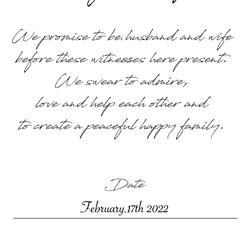 We promise to be husband and wife
before these witnesses here present.
We swear to admire,
love and help each other and
to create a peaceful happy family.
Date
February,17th 2022